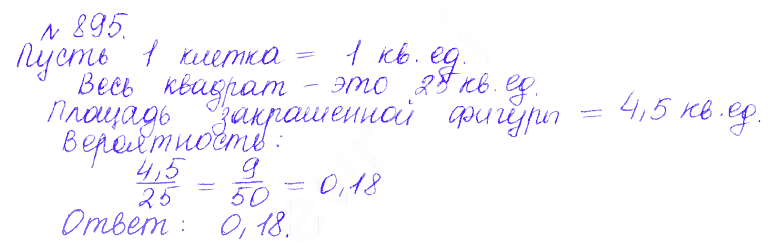 № 895.
Пусть 1 клетка = 1 кв. ед.
Весь квадрат – это 25 кв. ед.
Площадь закрашенной фигуры = 4,5 кв. ед.
Вероятность:
4,5/25 = 9/50 = 0,18
Ответ: 0,18.